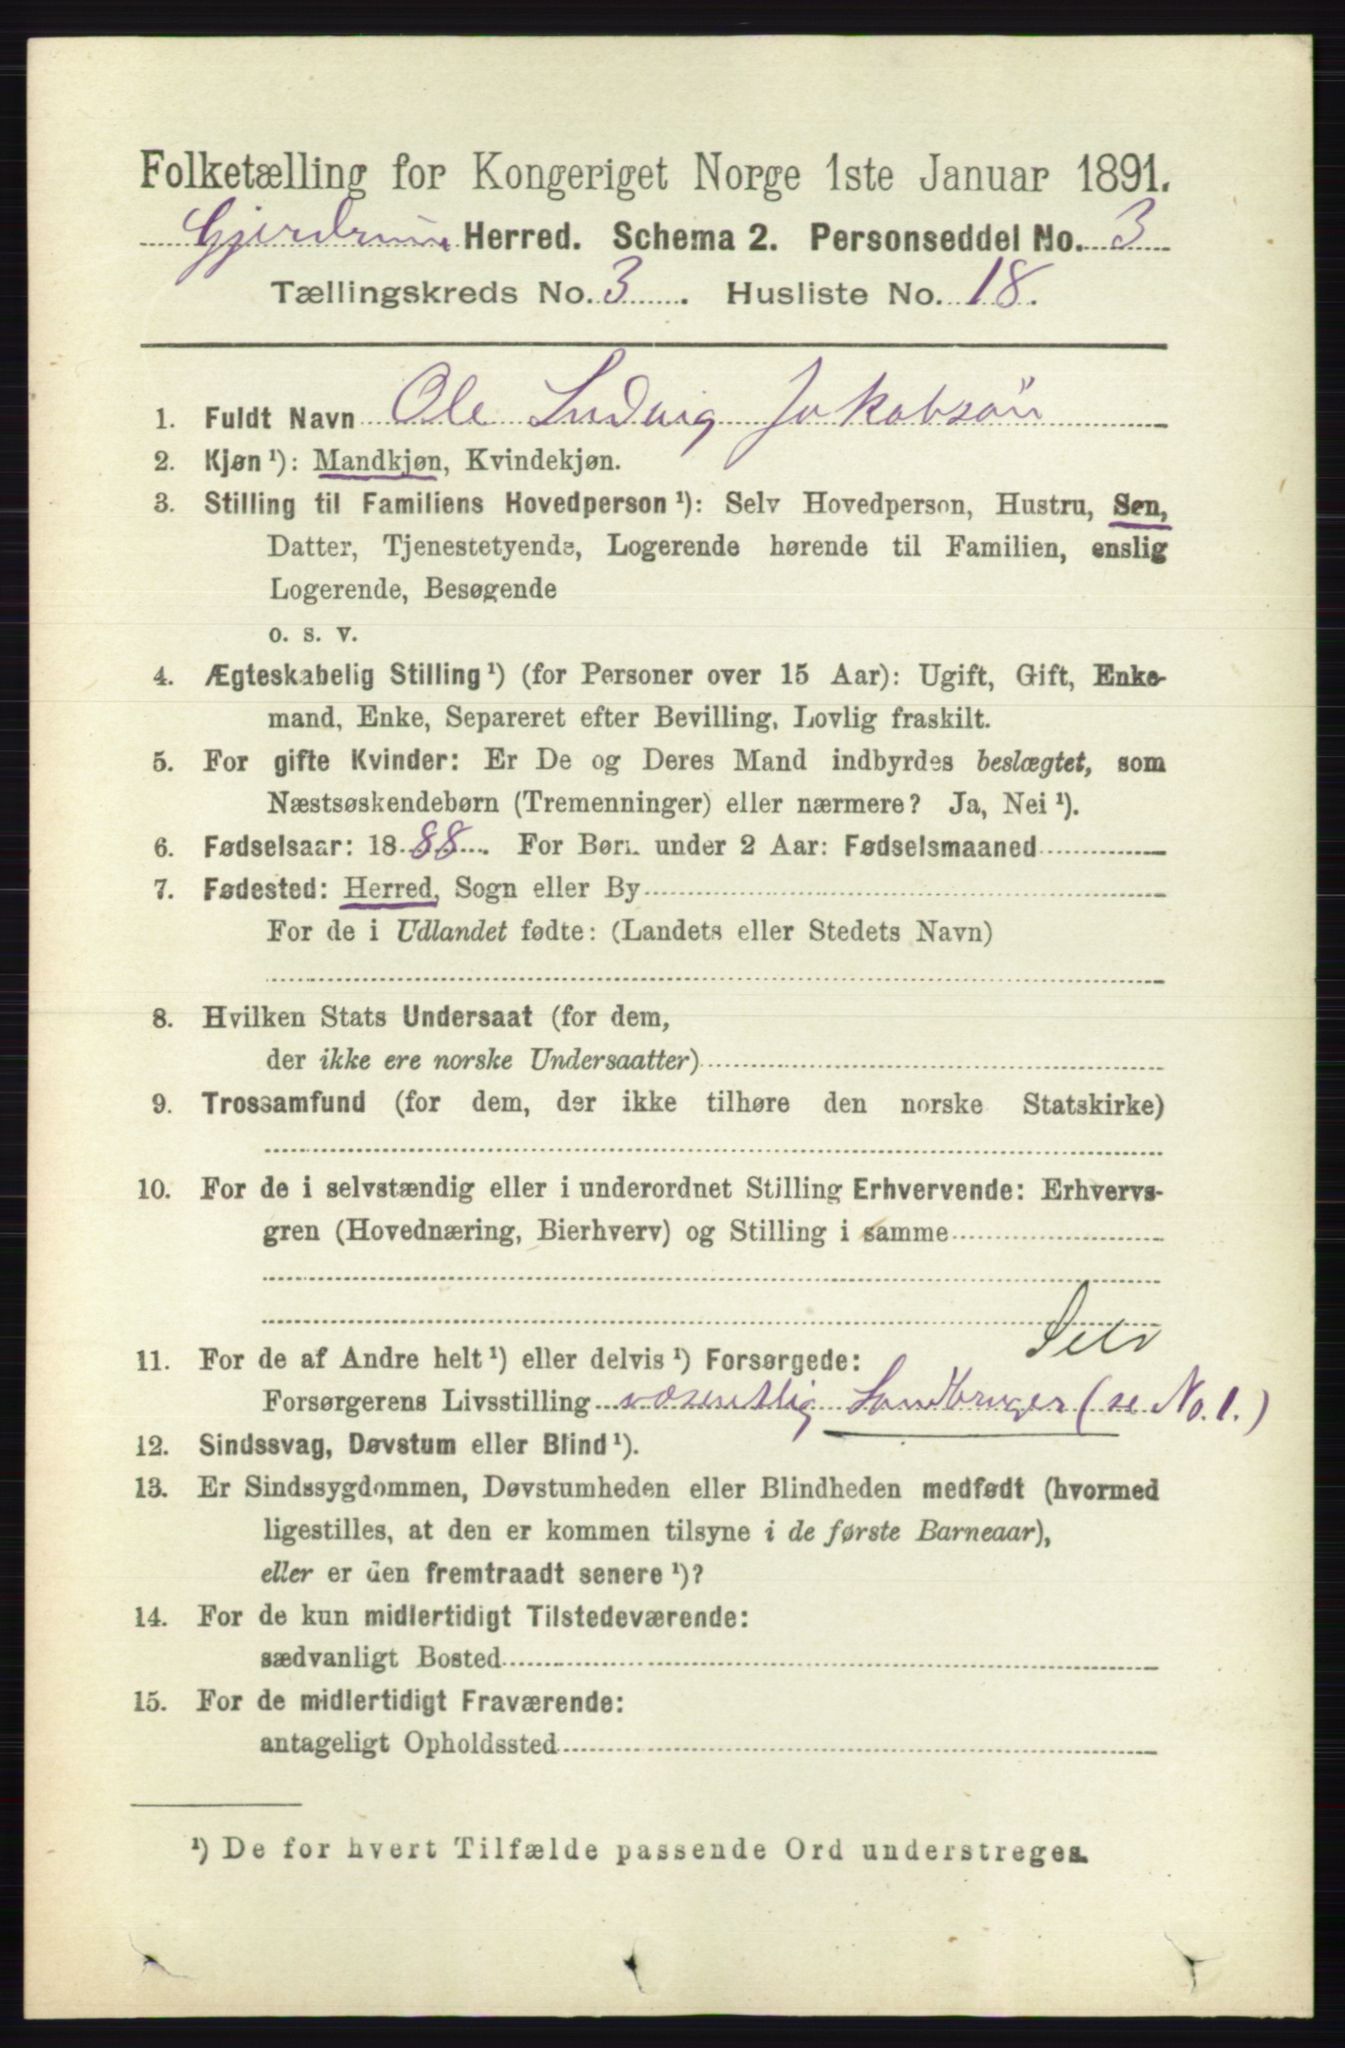 Folketælling for Kongeriget Norge 1ste Januar 1891.
Gjerdrum Herred. Schema 2. Personseddel No. 3
Tællingskreds No. 3. Husliste No. 18.
1. Fuldt Navn Ole Ludvig Jakobsøn
2. Kjøn ¹): Mandkjøn, Kvindekjøn.
3. Stilling til Familiens Hovedperson ¹): Selv Hovedperson, Hustru, Søn,
Datter, Tjenestetyende, Logerende hørende til Familien, enslig
Logerende, Besøgende
o. s. v.
4. Ægteskabelig Stilling ¹) (for Personer over 15 Aar): Ugift, Gift, Enke-
mand, Enke, Separeret efter Bevilling, Lovlig fraskilt.
5. For gifte Kvinder: Er De og Deres Mand indbyrdes beslægtet, som
Næstsøskendebørn (Tremenninger) eller nærmere? Ja, Nei ¹).
6. Fødselsaar: 1888. For Børn under 2 Aar: Fødselsmaaned
7. Fødested: Herred, Sogn eller By
For de i Udlandet fødte: (Landets eller Stedets Navn)
8. Hvilken Stats Undersaat (for dem,
der ikke ere norske Undersaatter)
9. Trossamfund (for dem, der ikke tilhøre den norske Statskirke)
10. For de i selvstændig eller i underordnet Stilling Erhvervende: Erhvervs-
gren (Hovednæring, Bierhverv) og Stilling i samme
Selv
11. For de af Andre helt ¹) eller delvis ¹) Forsørgede:
Forsørgerens Livsstilling væsentlig Landbruger (se No. 1.)
12. Sindssvag, Døvstum eller Blind ¹).
13. Er Sindssygdommen, Døvstumheden eller Blindheden medfødt (hvormed
ligestilles, at den er kommen tilsyne i de første Barneaar),
eller er den fremtraadt senere ¹)?
14. For de kun midlertidigt Tilstedeværende:
sædvanligt Bosted
15. For de midlertidigt Fraværende:
antageligt Opholdssted
¹) De for hvert Tilfælde passende Ord understreges.